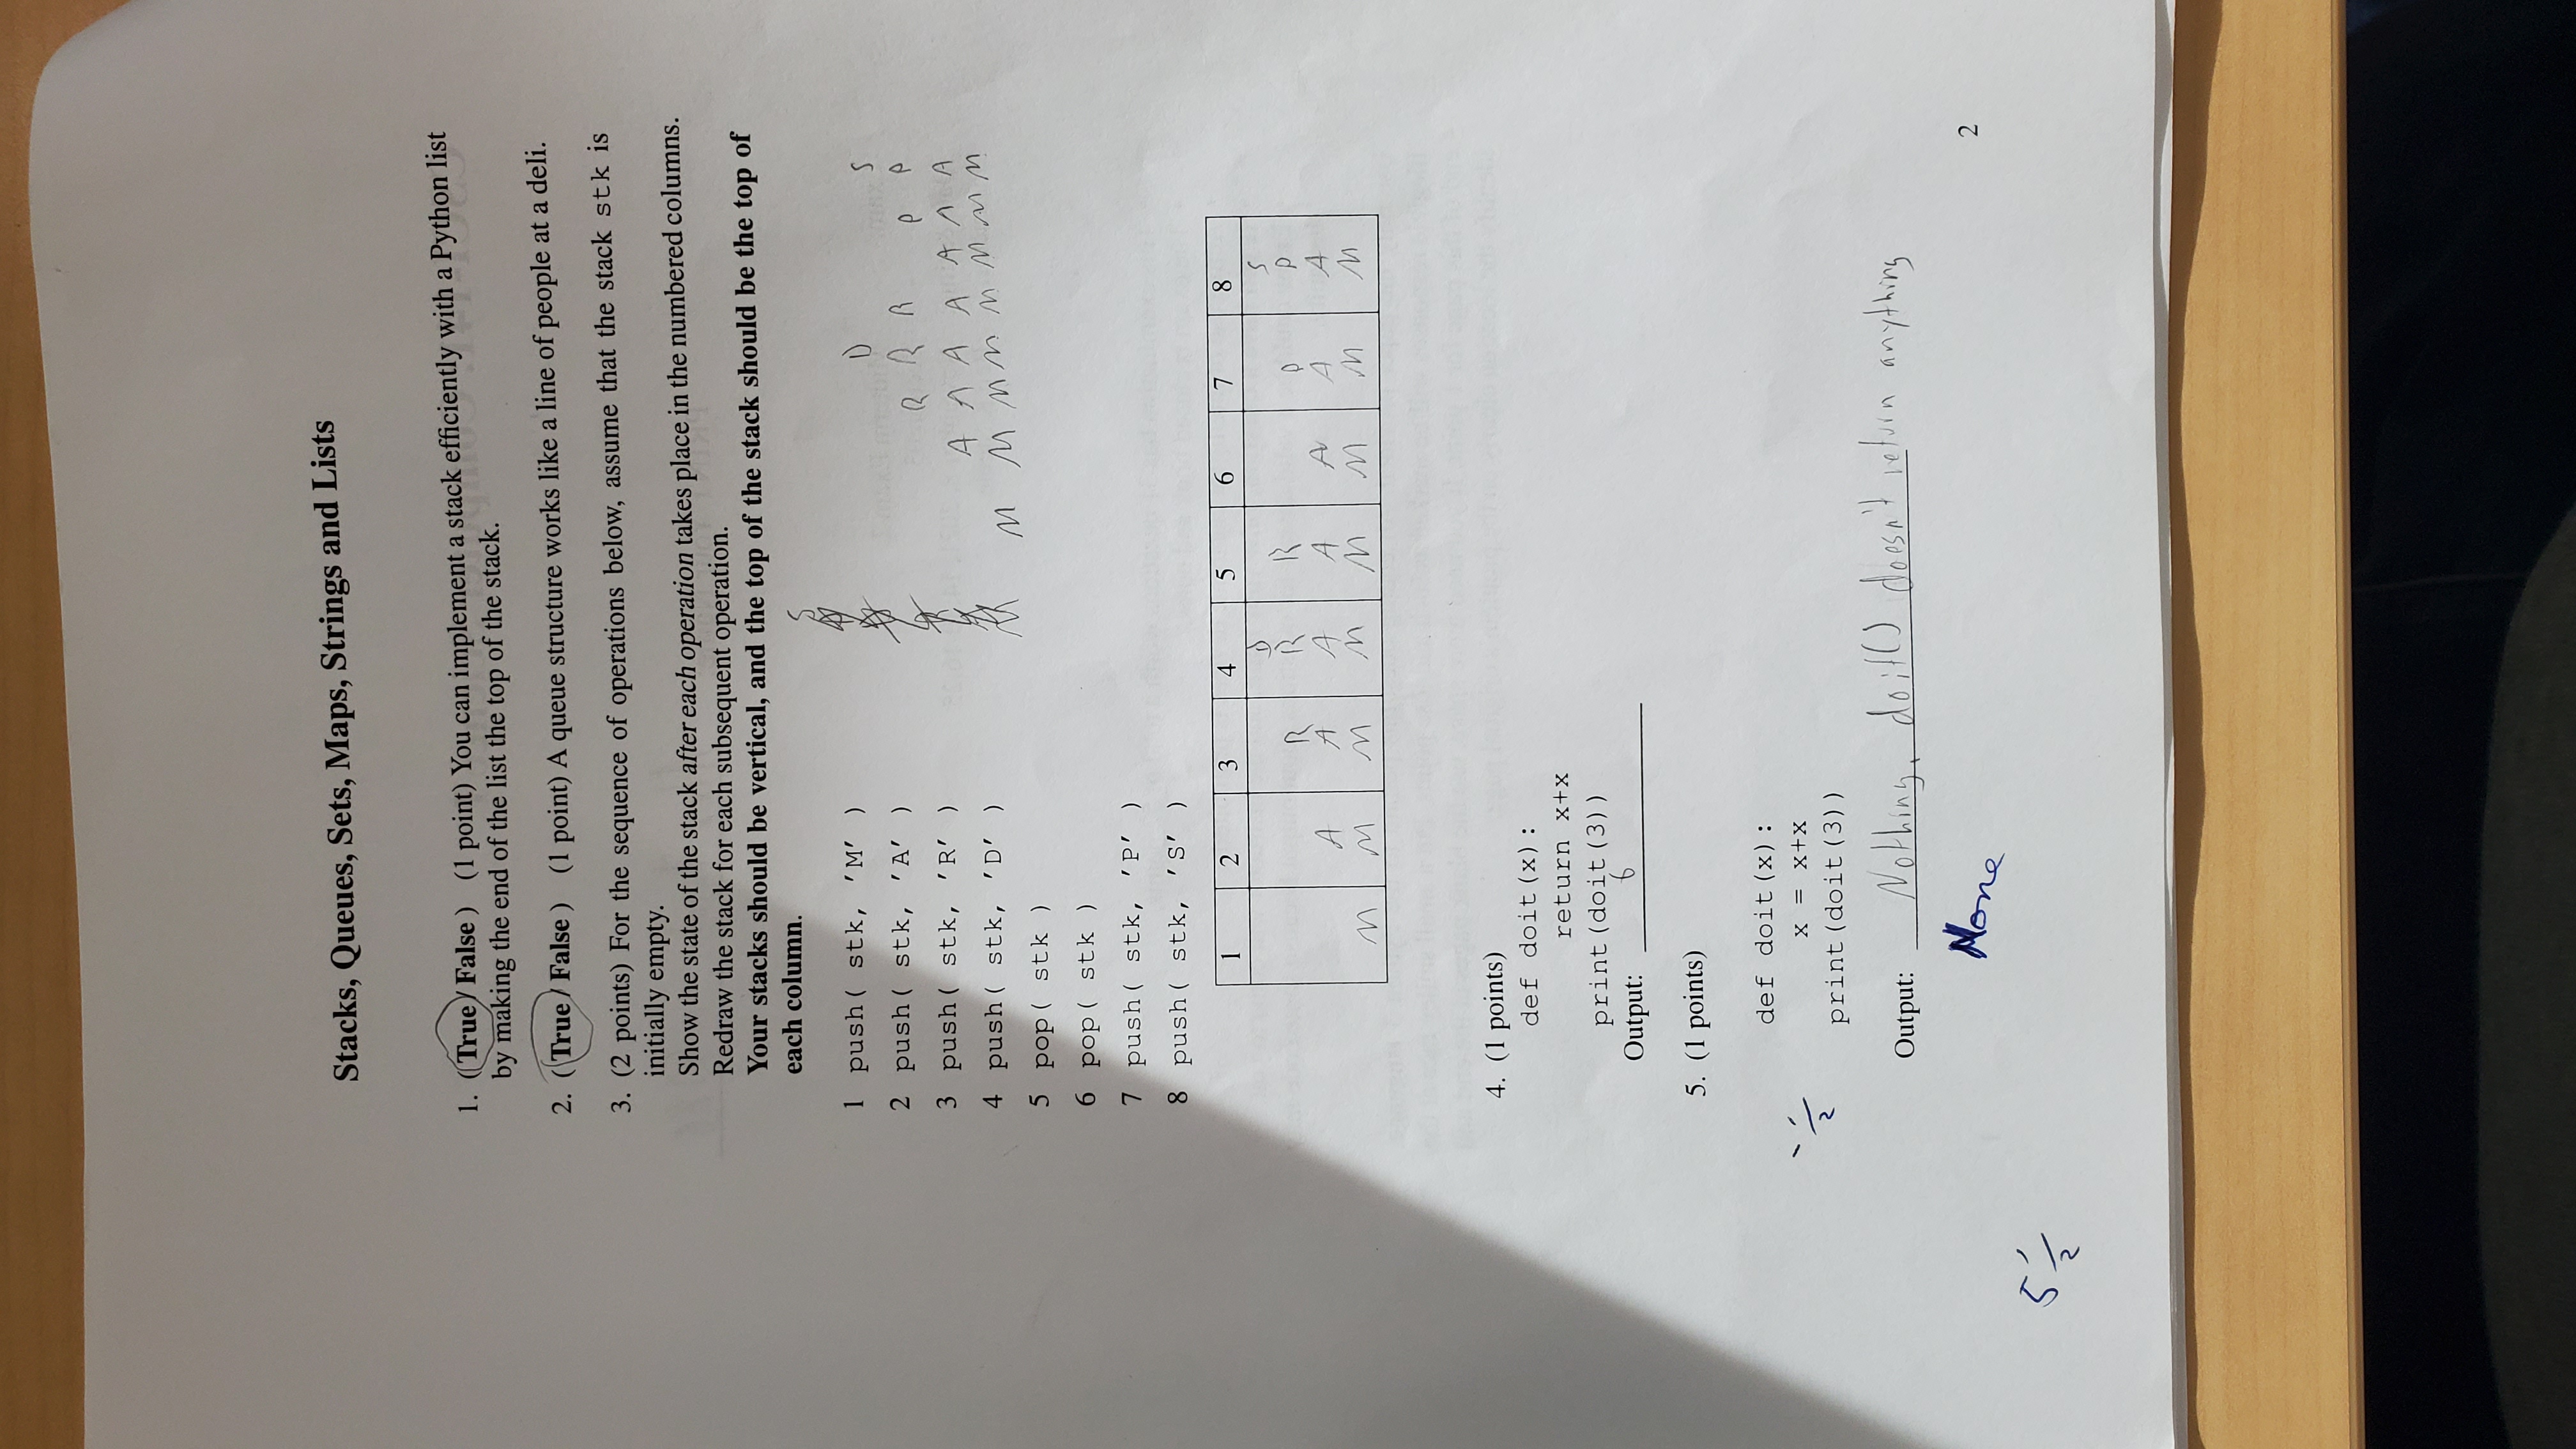 Stacks, Queues, Sets, Maps, Strings and Lists
1. (True / False ) (1 point) You can implement a stack efficiently with a Python list
by making the end of the list the top of the stack.
2. (True / False ) (1 point) A queue structure works like a line of people at a deli.
3. (2 points) For the sequence of operations below, assume that the stack stk is
initially empty.
Show the state of the stack after each operation takes place in the numbered columns.
Redraw the stack for each subsequent operation.
Your stacks should be vertical, and the top of the stack should be the top of
each column.
1 push( stk, 'M' )
2 push( stk, 'A' )
3 push( stk, 'R' )
4 push( stk, 'D' )
5 pop( stk )
6 pop( stk )
7 push( stk, 'P' )
8 push( stk, 'S' )
S
D S
R R R P P
A A A A A A A
M M M M M M M M
1 2 3 4 5 6 7 8
D S
R R R P P
A A A A A A A
M M M M M M M M
4. (1 points)
def doit(x):
return x+x
print(doit(3))
Output: 6
5. (1 points)
def doit(x):
x = x+x
- 1/2
print(doit(3))
Output: Nothing, doit() doesn't return anything
None
2
5 1/2